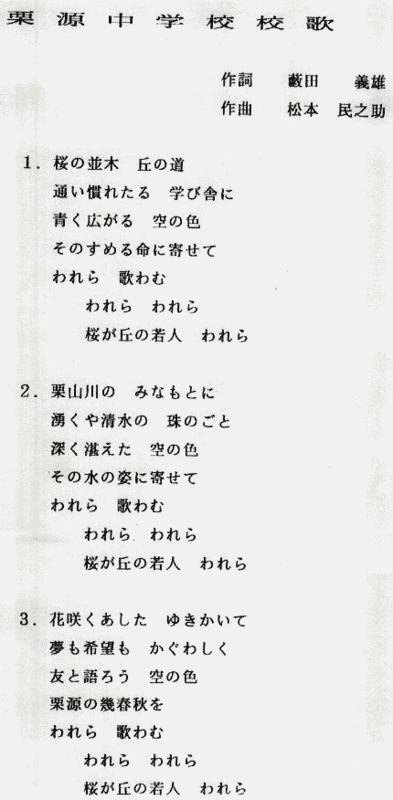 栗源中学校校歌
作詞　藪田　義雄
作曲　松本　民之助
1．桜の並木　丘の道
通い慣れたる　学び舎に
青く広がる　空の色
そのすめる命に寄せて
われら　歌わむ
われら　われら
桜が丘の若人　われら
2．栗山川の　みなもとに
湧くや清水の　珠のごと
深く湛えた　空の色
その水の姿に寄せて
われら　歌わむ
われら　われら
桜が丘の若人　われら
3．花咲くあした　ゆきかいて
夢も希望も　かぐわしく
友と語ろう　空の色
栗源の幾春秋を
われら　歌わむ
われら　われら
桜が丘の若人　われら